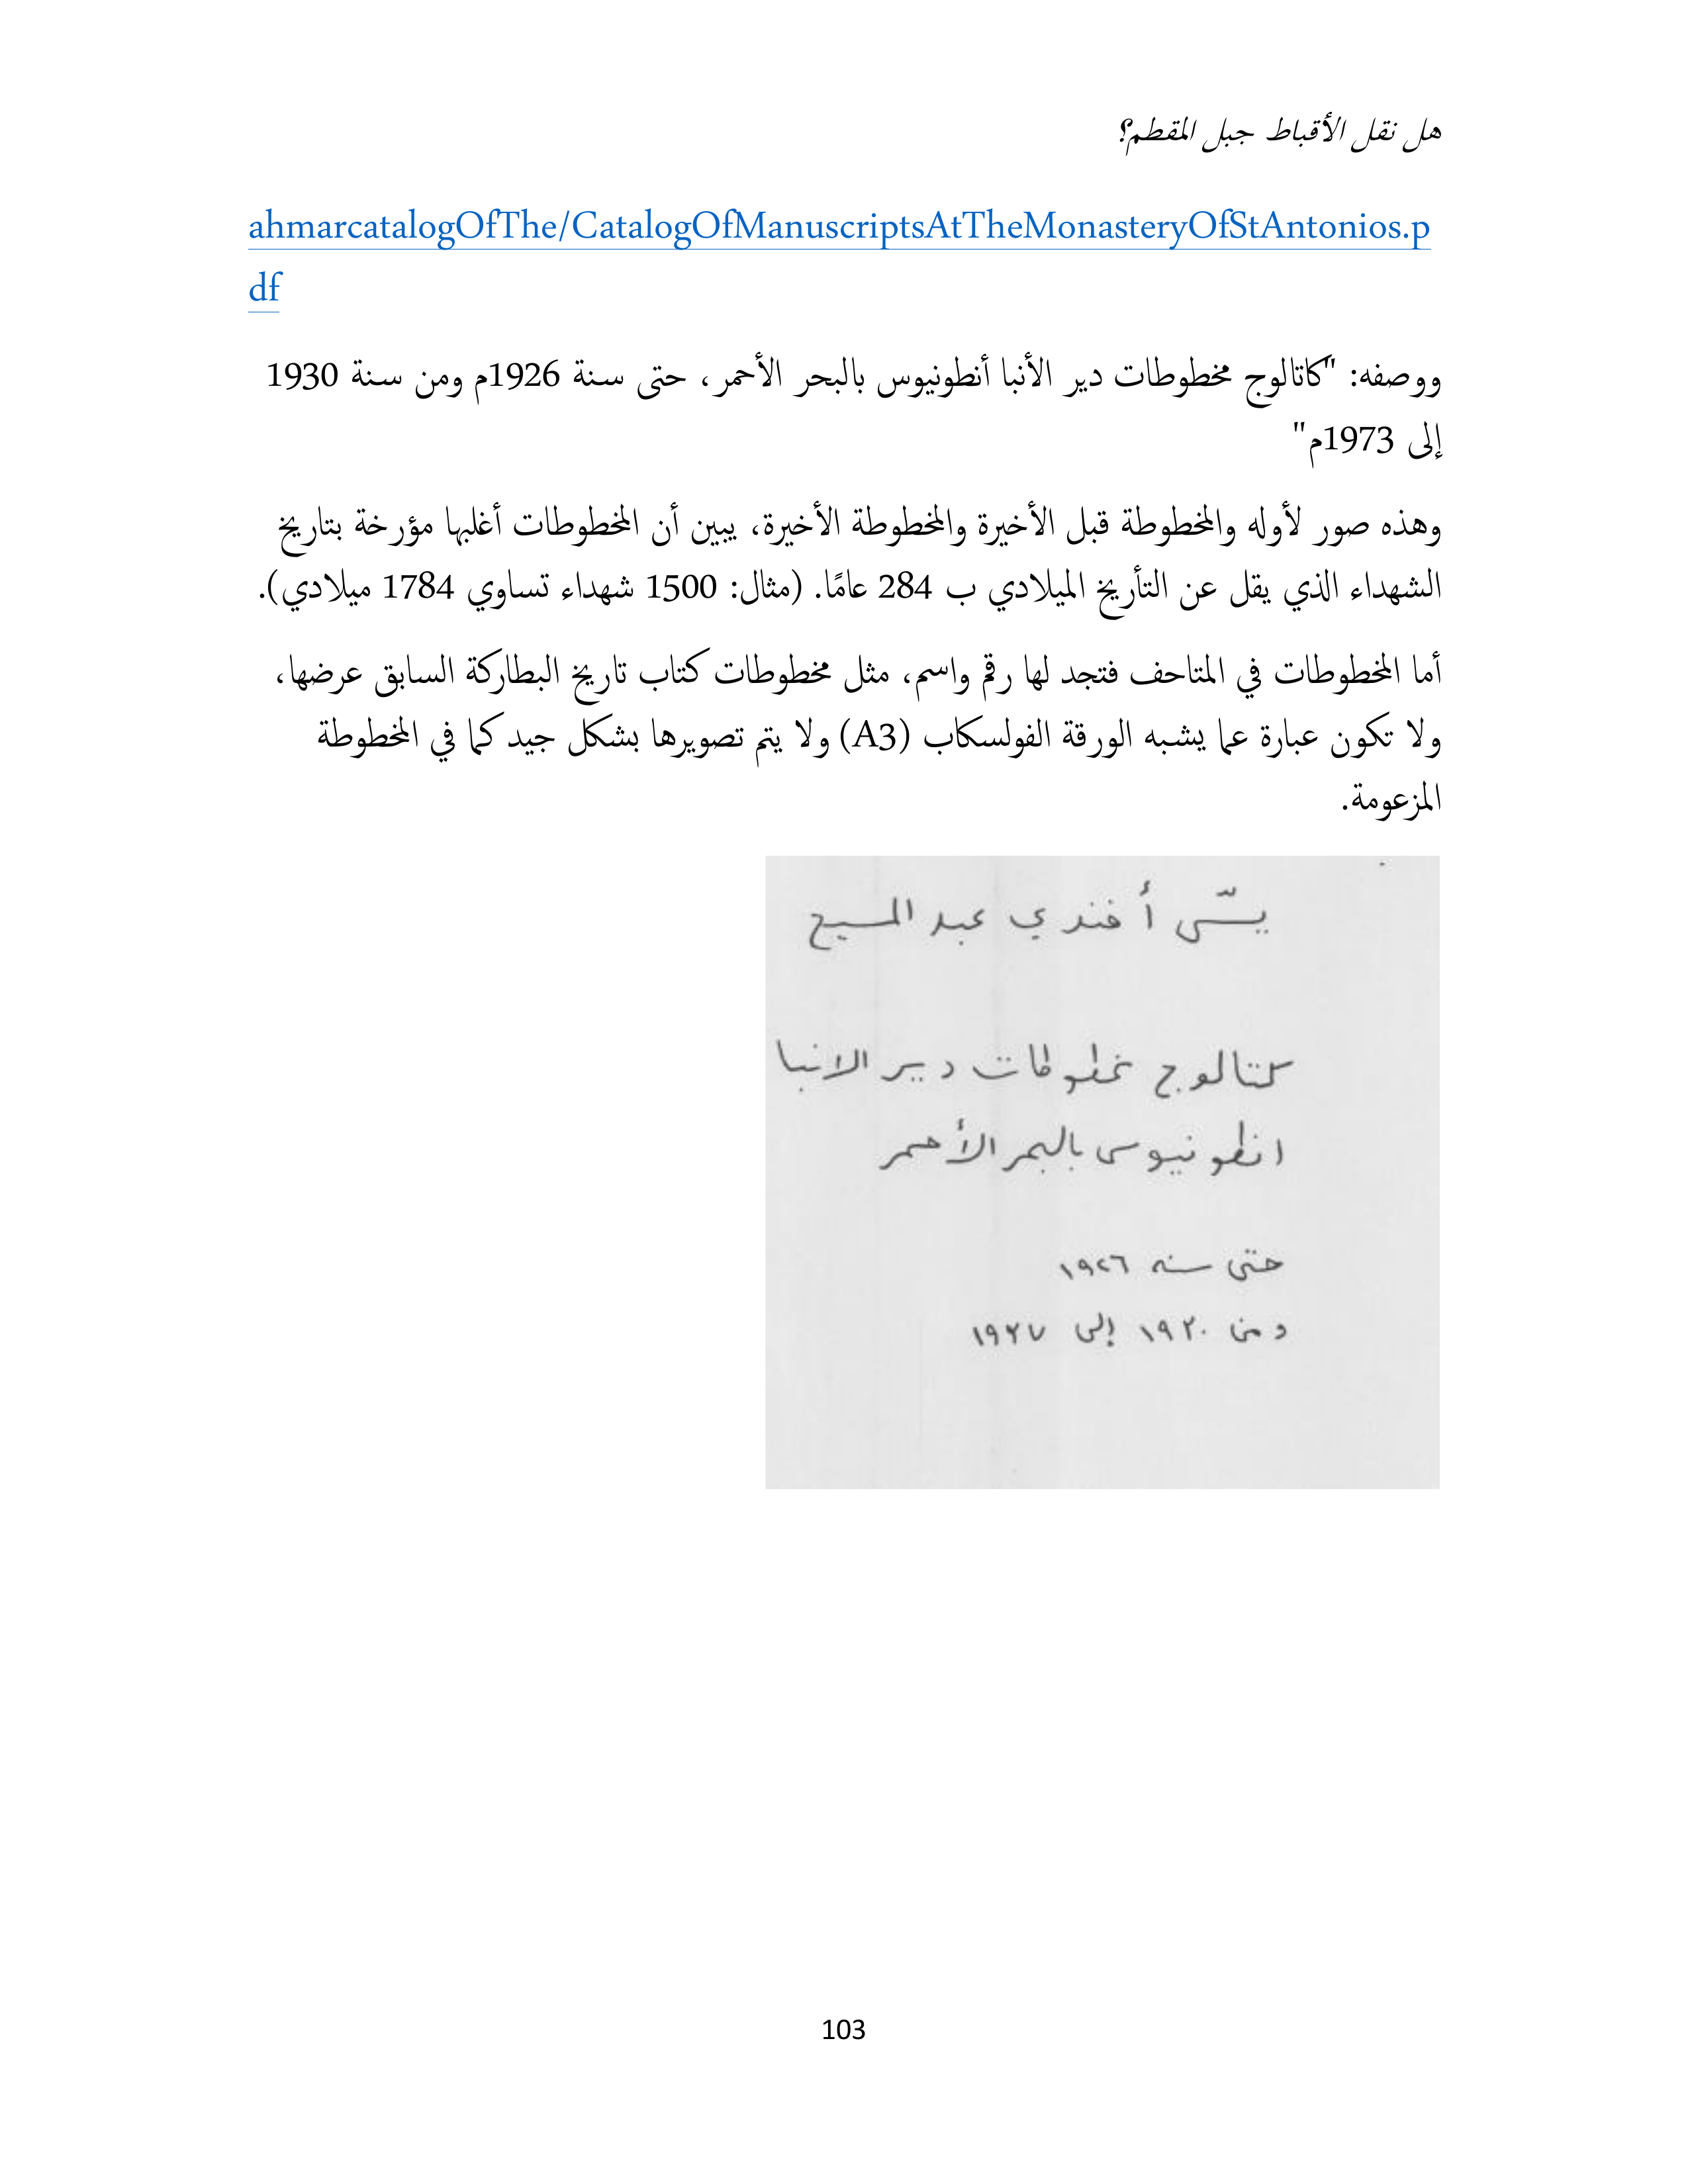 هل نقل الأقباط جبل المقطم؟
ahmarcatalogOfThe/CatalogOfManuscriptsAtTheMonasteryOfStAntonios.p
df
ووصفه: "كاتالوج مخطوطات دير الأنبا أنطونيوس بالبحر الأحمر، حتى سنة 1926م ومن سنة 1930
إلى 1973م"
وهذه صور لأوله والمخطوطة قبل الأخيرة والمخطوطة الأخيرة، يبين أن المخطوطات أغلبها مؤرخة بتاريخ
الشهداء الذي يقل عن التأريخ الميلادي ب 284 عامًا. (مثال: 1500 شهداء تساوي 1784 ميلادي).
أما المخطوطات في المتاحف فتجد لها رقم واسم، مثل مخطوطات كتاب تاريخ البطاركة السابق عرضها،
ولا تكون عبارة عما يشبه الورقة الفولسكاب (A3) ولا يتم تصويرها بشكل جيد كما في المخطوطة
المزعومة.
يسّى أفندي عبد المسيح
كتالوج مخطوطات دير الانبا
انطونيوس بالبحر الأحمر
حتى سنه ١٩٢٦
ومن ١٩٣٠ إلى ١٩٣٧
103